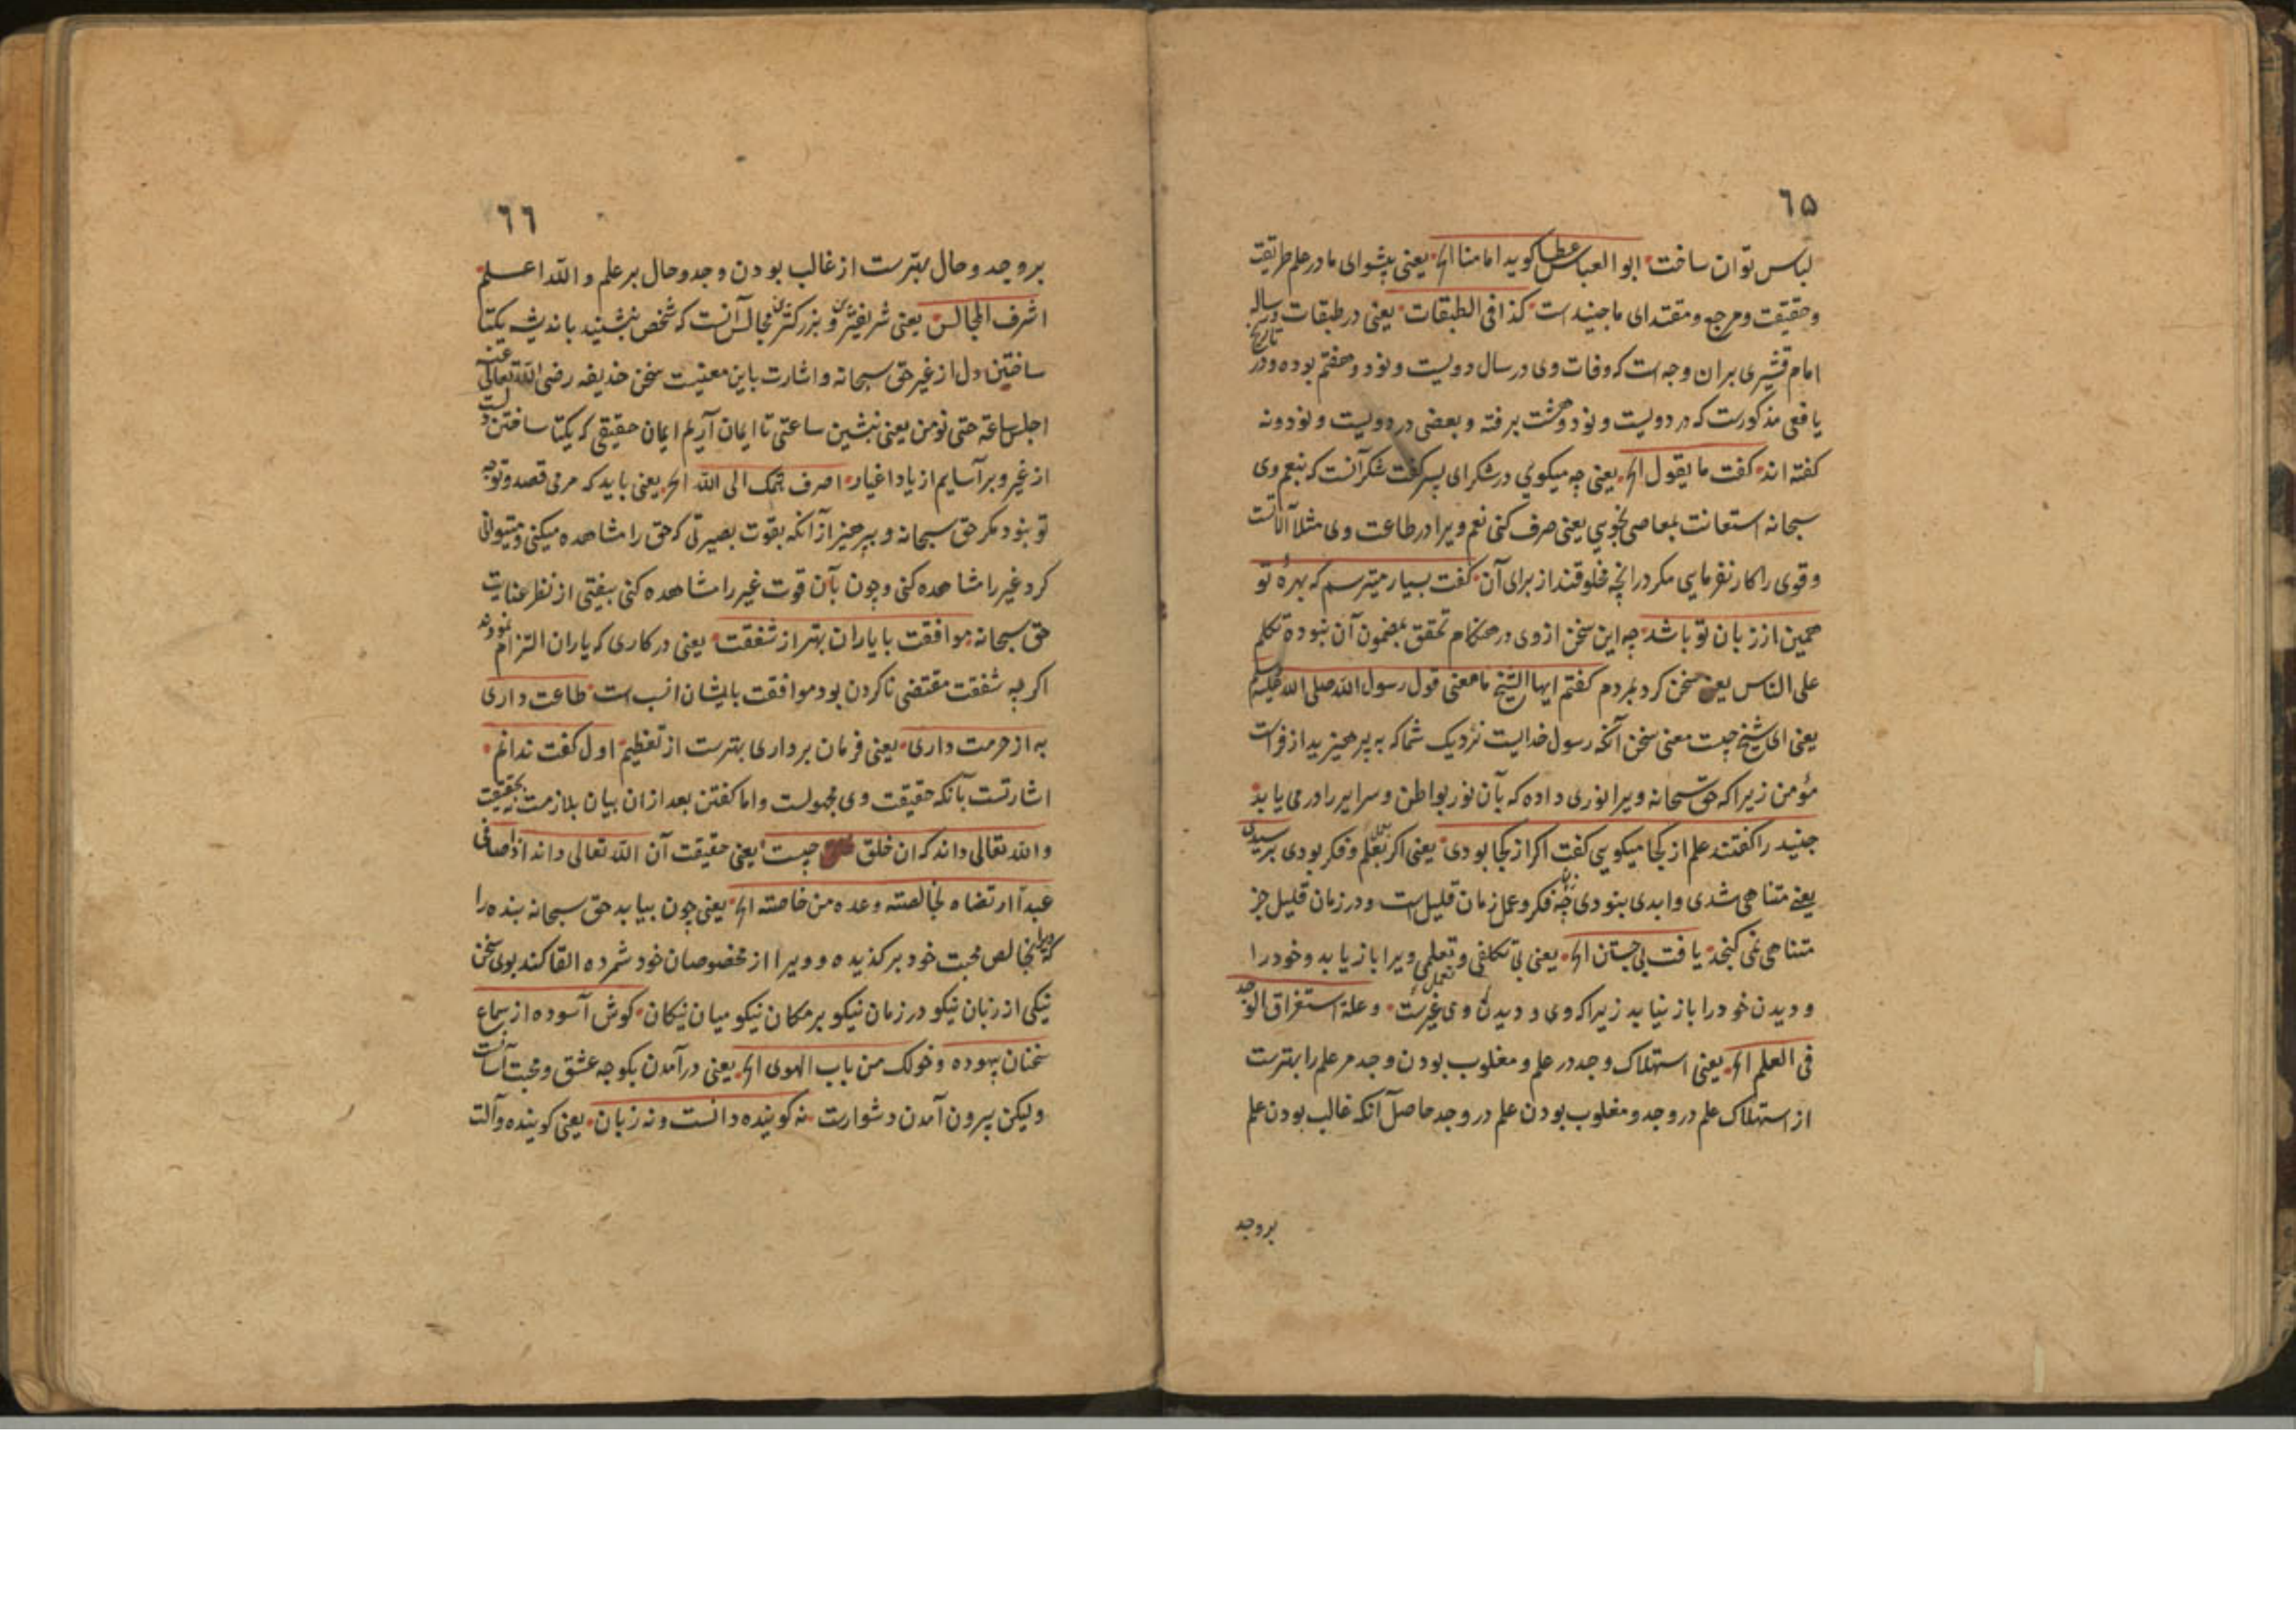 ٦۵
لباس توان ساخت ابو العباس عطا کوید امامنا الخ یعنی پیشوای ما در علم طریقت
وحقیقت ومرجع ومقتدای ما جنید است کذا فی الطبقات یعنی در طبقات ورساله
امام قشیری بران وجه است که وفات وی در سال دویست ونود وهفتم بوده ودر تاریخ
یافعی مذکورست که در دویست ونود وهشت برفته وبعضی در دویست ونود ونه
کفته اند کفت ما یقول الخ یعنی چه میکویی در شکر ای پسر کفت شکر آنست که بنعم وی
سبحانه استعانت بمعاصی نجویی یعنی صرف کنی نعم ویرا در طاعت وی مثلا آلات
وقوی را کار نفرمایی مکر در انچه مخلوقند از برای آن کفت بسیار میترسم که بهرۀ تو
همین از زبان تو باشد چه این سخن از وی در هنکام تحقق بمضمون آن نبوده تکلم
علی الناس یعنی سخن کرد بمردم کفتم ایها الشیخ ما معنی قول رسول الله صلی الله علیه وسلم
یعنی ای شیخ چیست معنی سخن آنکه رسول خدایست نزدیک شما که بپرهیزید از فراست
مؤمن زیرا که حق سبحانه ویرا نوری داده که بآن نور بواطن وسرایر را در می یابد
جنید را کفتند علم از کجا میکویی کفت اکر از کجا بودی یعنی اکر بتعلم وفکر بودی برسیدی
یعنی متناهی شدی وابدی بنودی چه فکر وعمل زمان قلیل است ودر زمان قلیل جز
متناهی نمی کنجد یافت بی جستن الخ یعنی بی تکلفی وتعملی ویرا باز یابد وخود را
ودیدن خود را باز نیابد زیرا که وی ودیدن وی غیرست وعلة استغراق الوجد
فی العلم الخ یعنی استهلاک وجد در علم ومغلوب بودن وجد مر علم را بهترست
از استهلاک علم در وجد ومغلوب بودن علم در وجد حاصل آنکه غالب بودن علم
بر وجد
٦٦
بر وجد وحال بهترست از غالب بودن وجد وحال بر علم والله اعلم
اشرف المجالس یعنی شریفترین وبزرکترین مجالس آنست که شخص بنشیند باندیشه یکتا
ساختن دل از غیر حق سبحانه واشارت باین معنیست سخن حذیفه رضی الله تعالی عنه
اجلس ساعة حتی نومن یعنی بنشین ساعتی تا ایمان آریم ایمان حقیقی که یکتا ساختن دلست
از غیر وبر آسایم از یاد اغیار اصرف همک الی الله الخ یعنی باید که مرمی قصد وتوجه
تو بنود مکر حق سبحانه وبپرهیز از آنکه بقوت بصیرتی که حق را مشاهده میکنی ومیتوانی
کرد غیر را مشاهده کنی وچون بآن قوت غیر را مشاهده کنی بیفتی از نظر عنایت
حق سبحانه موافقت با یاران بهتر از شفقت یعنی در کاری که یاران التزام نمودند
اکر چه شفقت مقتضی ناکردن بود موافقت بایشان انسب است طاعت داری
به از حرمت داری یعنی فرمان برداری بهترست از تعظیم اول کفت ندانم
اشارتست بآنکه حقیقت وی مجهولست واما کفتن بعد ازان بیان بلازمست نه بحقیقت
والله تعالی داند که ان خلق چیست یعنی حقیقت آن الله تعالی داند اذا صافی
عبدا ارتضاه بخالصته وعده من خاصته الخ یعنی چون بیابد حق سبحانه بنده را
که ویرا بخالص محبت خود برکذیده وویرا از مخصوصان خود شمرده القا کند بوی سخن
نیکی از زبان نیکو در زمان نیکو بر مکان نیکو میان نیکان کوش آسوده از سماع
سخنان بیهوده دخولک من باب الهوی الخ یعنی در آمدن بکوچه عشق ومحبت آسانست
ولیکن بیرون آمدن دشوارست نه کوینده دانست ونه زبان یعنی کوینده وآلت